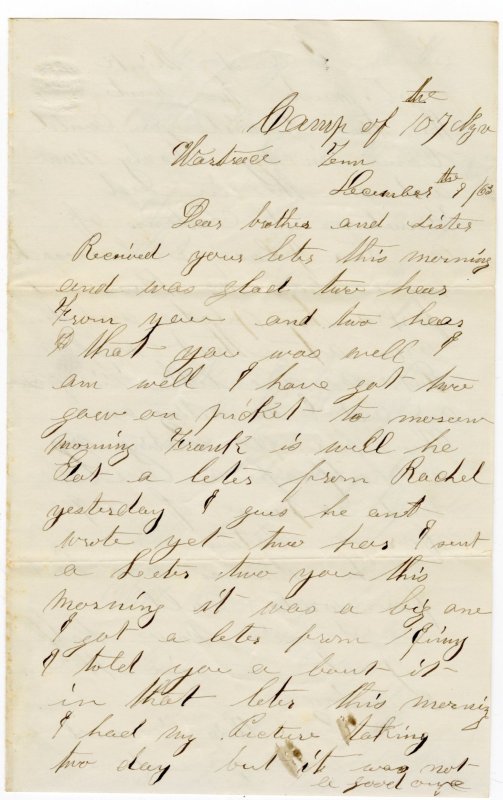 Camp of the 107 Nyv
Wartrace Tenn
December the 9 /63
Dear brother and sister
Received your leter this morning
and was glad two hear
From you and two hear
that you was well I
am well I have got two
gow on picket to morow
morning Frank is well he
Got a leter from Rachel
yesterday I gues he ant
wrote yet two her I sent
a Leeter two you this
morning it was a big one
I got a leter from Jinny
I told you a bout it
in that leter this morning
I had my Picture taking
two day but it was not
a good one